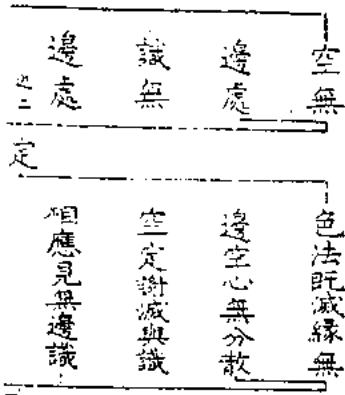 空無
邊處
識無
邊處
定
色法既滅緣無
邊空心無分散
空定謝滅與識
相應見無邊識